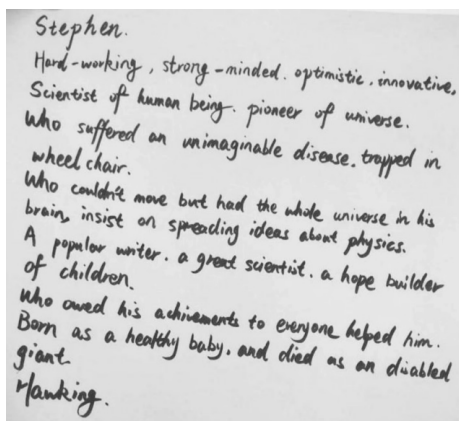 Stephen.
Hard-working, strong-minded. optimistic. innovative.
Scientist of human being. pioneer of universe.
Who suffered an unimaginable disease. trapped in
wheel chair.
Who couldn't move but had the whole universe in his
brain, insist on spreading ideas about physics.
A popular writer. a great scientist. a hope builder
of children.
Who owed his achivements to everyone helped him.
Born as a healthy baby. and died as an disabled
giant.
Hawking.